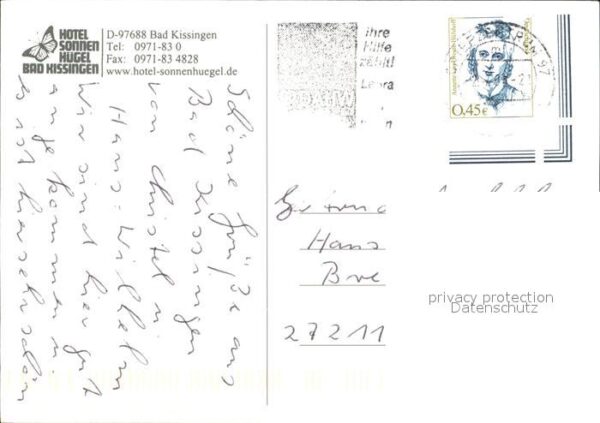 HOTEL
SONNEN
HÜGEL
BAD KISSINGEN
D-97688 Bad Kissingen
Tel: 0971-83 0
Fax: 0971-83 4828
www.hotel-sonnenhuegel.de
Schöne Grüße aus
Bad Kissingen
von Christel u.
Hans-Wilhelm
Wir sind hier gut
angekommen u.
es ist hier sehr schön
ihre
Hilfe
zählt!
Lepra
97
0,45€
Hans
27211
privacy protection
Datenschutz